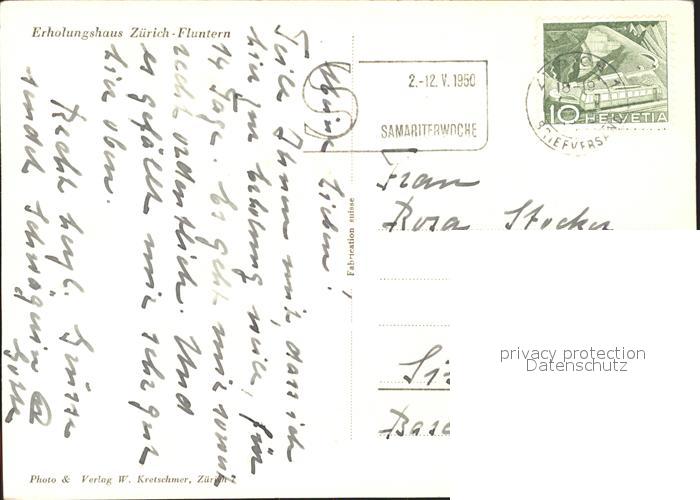 Erholungshaus Zürich-Fluntern
Meine Lieben!
Teile Ihnen mit, dass ich
hier zur Erholung weile, für
14 Tage. Es geht mir soweit
recht ordentlich. Und
es gefällt mir sehr gut
hier oben.
Recht herzl. Grüsse
sendet Schwägerin
Photo & Verlag W. Kretschmer, Zürich 7
Fabrication suisse
2.-12. V. 1950
SAMARITERWOCHE
ZÜRICH
BRIEFVERSAND
10 HELVETIA
Frau
Rosa Stocker
privacy protection
Datenschutz